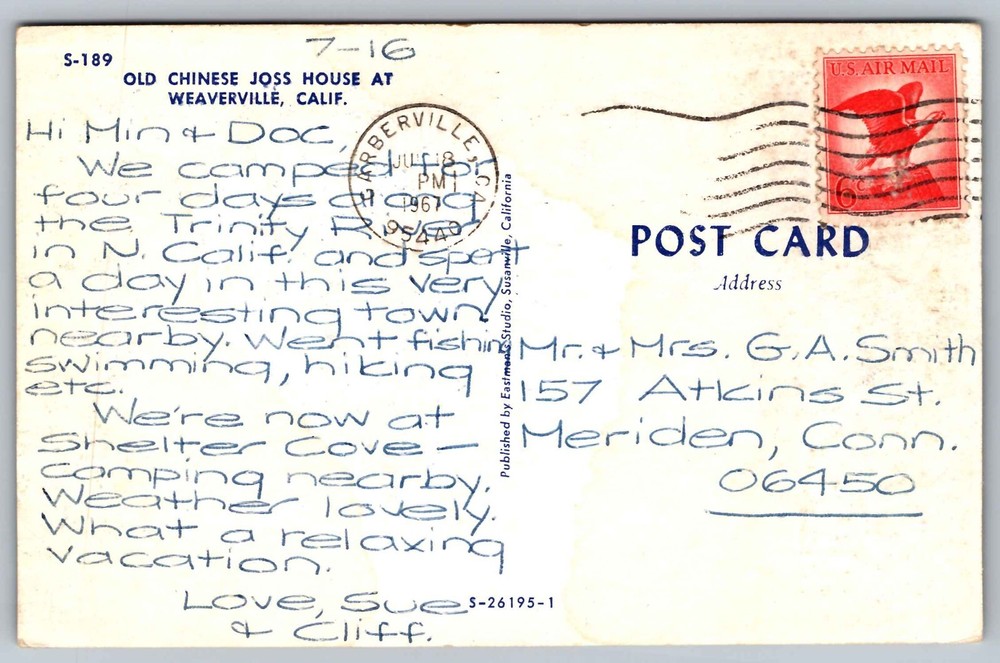 7-16
S-189
OLD CHINESE JOSS HOUSE AT
WEAVERVILLE, CALIF.
Hi Min & Doc,
We camped for
four days along
the Trinity River
in N. Calif. and spent
a day in this very
interesting town
nearby. Went fishing
swimming, hiking
etc.
We're now at
Shelter Cove -
camping nearby.
Weather lovely.
What a relaxing
vacation.
Love, Sue
& Cliff.
GARBERVILLE, CA
JUL 18
PM
1967
95440
Published by Eastman's Studio, Susanville, California
S-26195-1
U.S. AIR MAIL
6c
POST CARD
Address
Mr. & Mrs. G.A. Smith
157 Atkins St.
Meriden, Conn.
06450